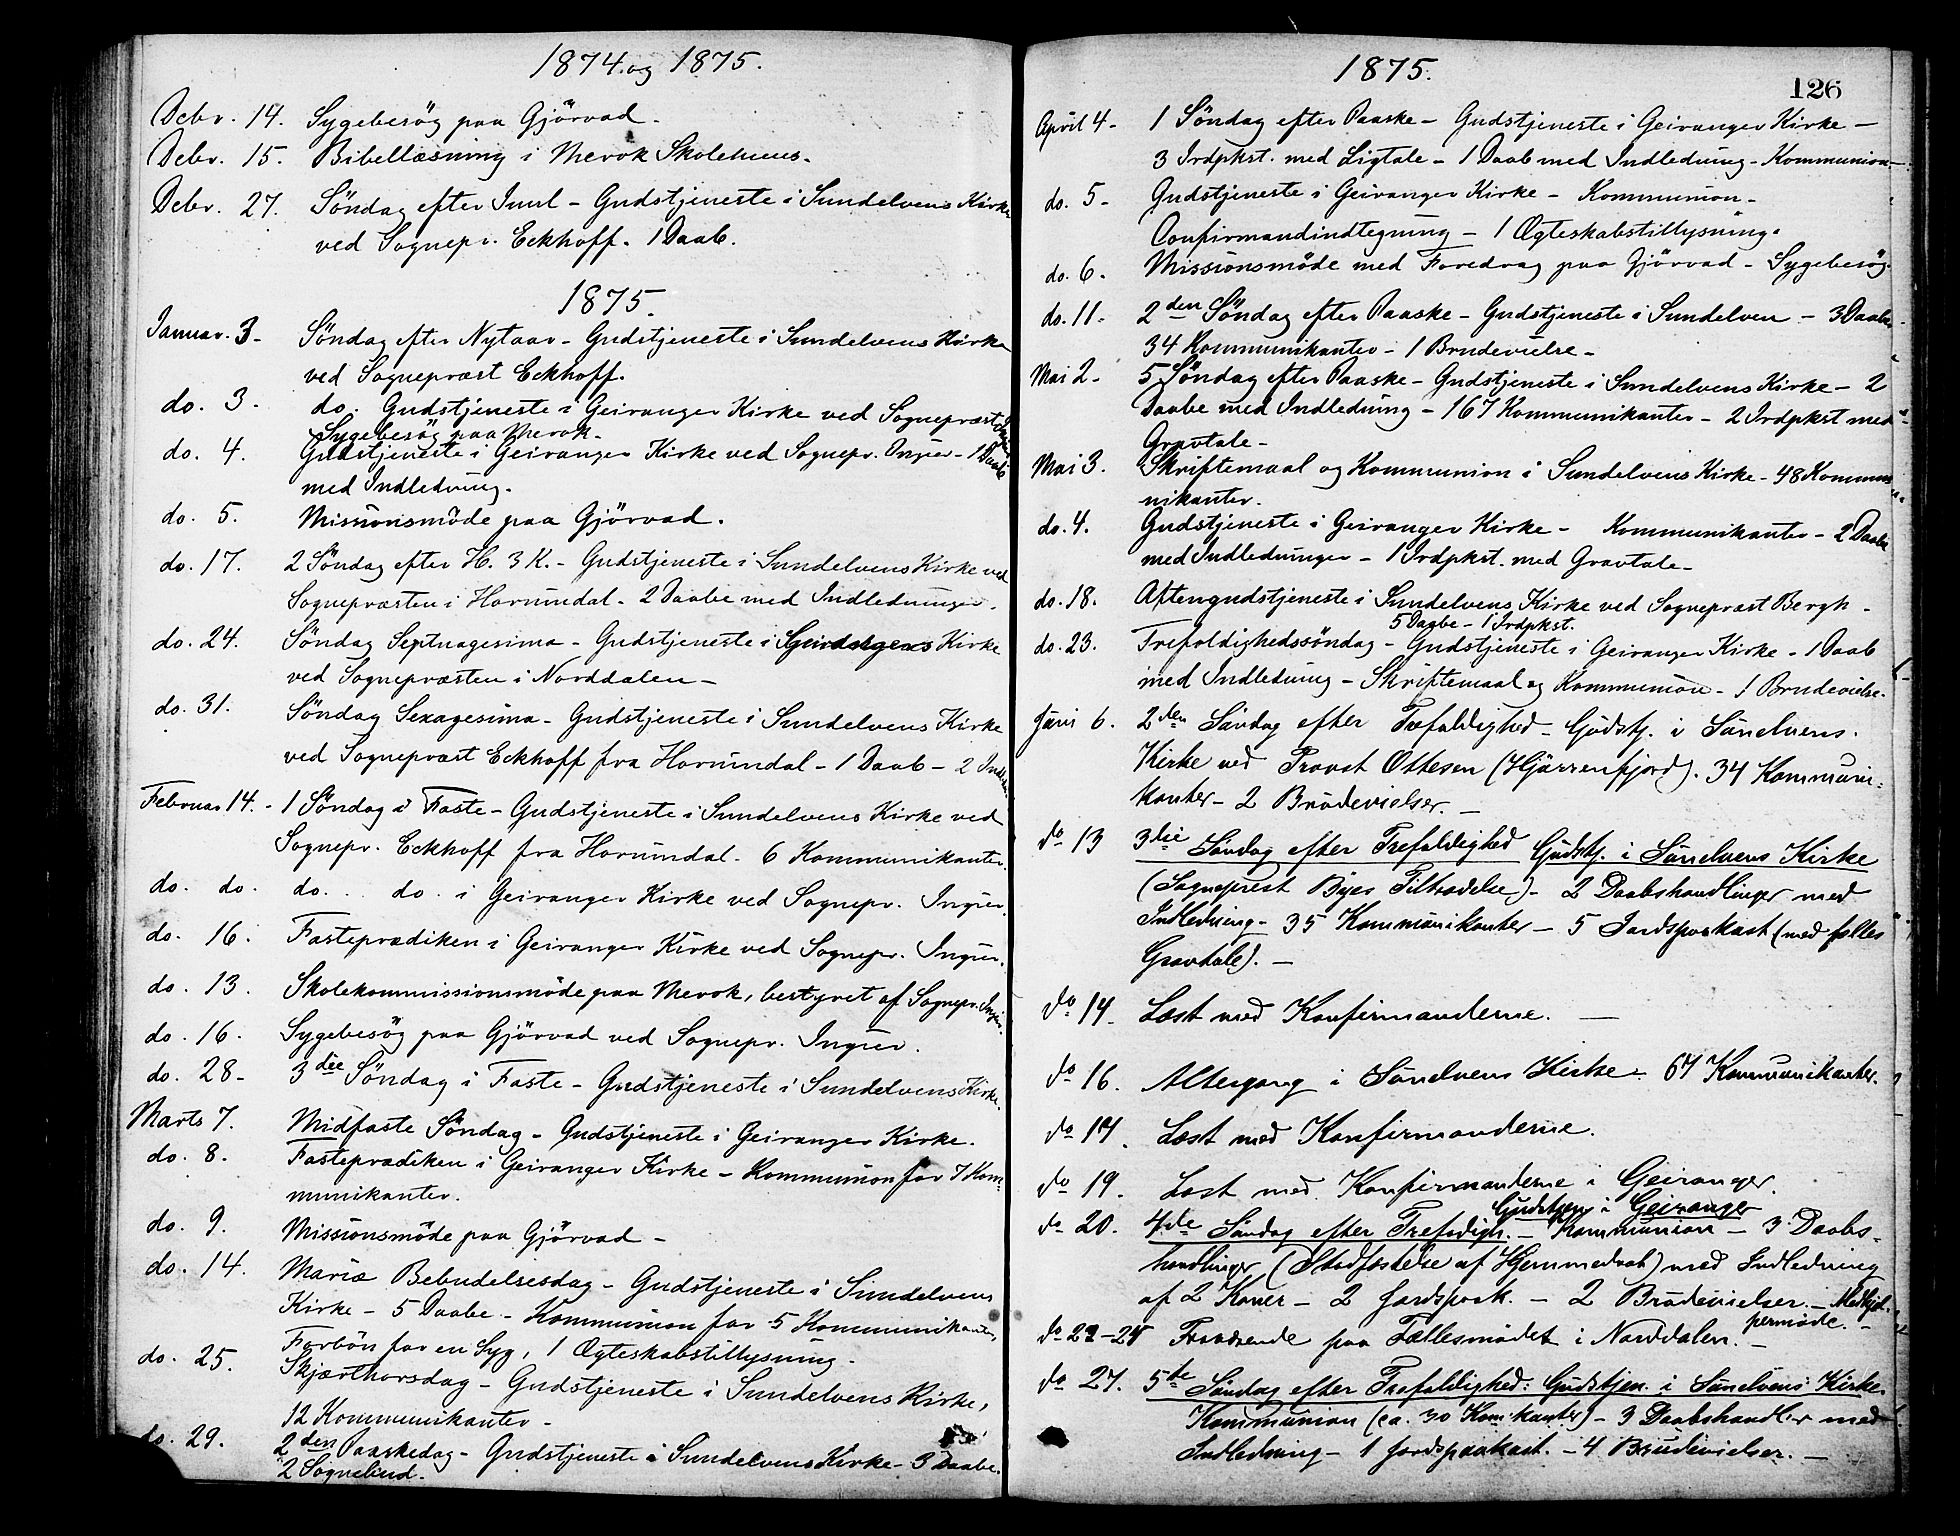 1874 og 1875.
Debr. 14. Sygebesög paa Gjörvad -
Debr. 15. Bibellæsning i Merok Skolehuus.
Debr. 27. Söndag efter Juul - Gudstjeneste i Sundelvens Kirke
ved Sognepr. Eckhoff. 1 Daab.
1875.
Januar. 3 - Söndag efter Nytaar - Gudstjeneste i Sundelvens Kirke
ved Sognepræst Eckhoff.
do. 3. do. Gudstjeneste i Geiranger Kirke ved Sognepræst
Sygebesög paa Merok -
do. 4. Gudstjeneste i Geiranger Kirke ved Sognepr. Ingier - 1 Daab
med Indledning.
do. 5. Missionsmöde paa Gjörvad.
do. 17. 2 Söndag efter H. 3 K. - Gudstjeneste i Sundelvens Kirke ved
Sognepræsten i Horundal - 2 Daabe med Indledninger.
do. 24. Söndag Septuagesima - Gudstjeneste i Kirke
ved Sognepræsten i Norddalen -
do. 31. Söndag Sexagesima - Gudstjeneste i Sundelvens Kirke
ved Sognepræst Eckhoff fra Horundal - 1 Daab - 2
Februar 14. - 1 Söndag i Faste - Gudstjeneste i Sundelvens Kirke ved
Sognepr. Eckhoff fra Horundal. 6 Kommunikanter.
do. do. do. do. i Geiranger Kirke ved Sognepr. Ingier.
do. 16. Fasteprædiken i Geiranger Kirke ved Sognepr. Ingier.
do. 13. Skolekommissionsmöde paa Merok, bestyret af Sognepr. Ingier.
do. 16. Sygebesög paa Gjörvad ved Sognepr. Ingier.
do. 28 - 3die Söndag i Faste - Gudstjeneste i Sundelvens Kirke.
Marts 7. Midfaste Söndag - Gudstjeneste i Geiranger Kirke.
do. 8. Fasteprædiken i Geiranger Kirke - Kommunion for 7 Kom-
munikanter.
do. 9. Missionsmöde paa Gjörvad -
do. 14. Mariæ Bebudelsesdag - Gudstjeneste i Sundelvens
Kirke - 5 Daabe - Kommunion for 5 Kommunikanter,
Forbön for en Syg, 1 Ægteskabstillysning -
do. 25. Skjærthorsdag - Gudstjeneste i Sundelvens Kirke,
12 Kommunikanter -
do. 29. 2den Paaskedag - Gudstjeneste i Sundelvens Kirke - 3 Daabe.
2 Sognebud.
1875.
126
April 4 - 1 Söndag efter Paaske - Gudstjeneste i Geiranger Kirke -
3 Jrdpkst. med Ligtale - 1 Daab med Indledning - Kommunion -
do. 5 - Gudstjeneste i Geiranger Kirke - Kommunion -
Confirmandindtegning - 1 Ægteskabstillysning.
do. 6. Missionsmöde med Foredrag paa Gjörvad - Sygebesög.
do. 11. 2den Söndag efter Paaske - Gudstjeneste i Sundelven - 3 Daabe -
34 Kommunikanter - 1 Brudevielse -
Mai 2 - 5 Söndag efter Paaske - Gudstjeneste i Sundelvens Kirke - 2
Daabe med Indledning - 167 Kommunikanter - 2 Jrdpkst med
Gravtale -
Mai 3. Skriftemaal og Kommunion i Sundelvens Kirke - 48 Kommu-
nikanter.
do. 4. Gudstjeneste i Geiranger Kirke - Kommunikanter - 2 Daabe
med Indledninger - 1 Jrdpkst. med Gravtale -
do. 18. Aftengudstjeneste i Sundelvens Kirke ved Sognepræst Bergh -
5 Daabe - 1 Jrdpkst.
do. 23. Trefoldighedssöndag - Gudstjeneste i Geiranger Kirke - 1 Daab
med Indledning - Skriftemaal og Kommunion - 1 Brudevielse.
Juni 6. 2den Söndag efter Trefoldighed - Gudstj. i Sunelvens
Kirke ved Provst Ottesen (Hjörrenfjord). 34 Kommuni-
kanter - 2 Brudevielser. -
do 13 3die Söndag efter Trefoldighed Gudstj. i Sunelvens Kirke
(Sogneprest Byes Tiltrædelse) - 2 Daabshandlinger med
Indledning - 35 Kommunikanter - 5 Jordspaakast (med fælles
Gravtale). -
do 14. Læst med Konfirmanderne. -
do 16. Altergang i Sunelvens Kirke. 67 Kommunikanter.
do 17. Læst med Konfirmanderne.
do 19. Læst med Konfirmanderne i Geiranger.
Gudstjen. i Geiranger
do 20. 4de Söndag efter Trefoldigh. - Kommunion - 3 Daabs-
handlinger (Stadfæstelse af Hjemmedaab) med Indledning
af 2 Koner - 2 Jordspaak. - 2 Brudevielser. - Medhjæl-
permöde. -
do 22-24 Fraværende paa Fællesmödet i Norddalen. -
do 27. 5te Söndag efter Trefoldighed: Gudstjen. i Sunelvens Kirke.
Kommunion (ca. 30 Komikanter) - 3 Daabshandler med
Indledning - 1 Jordspaakast. - 4 Brudevielser. -